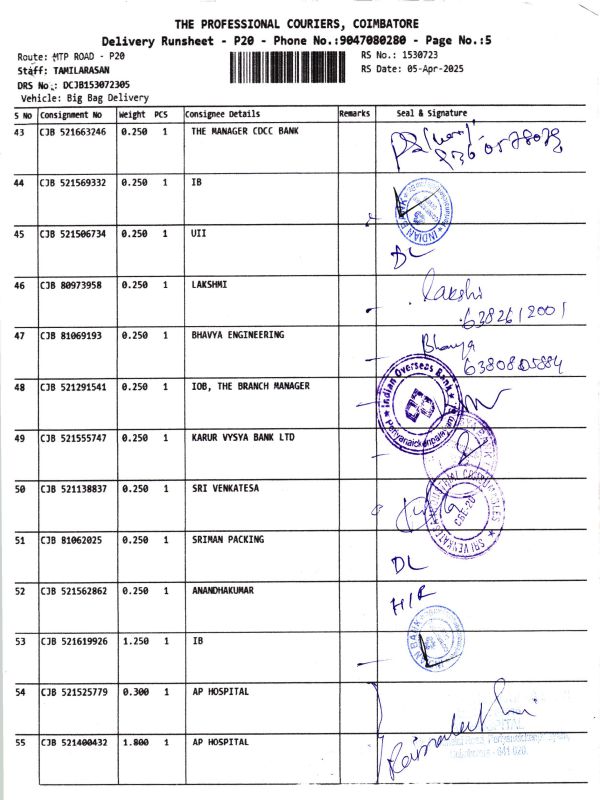 THE PROFESSIONAL COURIERS, COIMBATORE
Delivery Runsheet - P20 - Phone No.:9047080280 - Page No.:5
Route: MTP ROAD - P20
RS No.: 1530723
Staff: TAMILARASAN
RS Date: 05-Apr-2025
DRS No.: DCJB153072305
Vehicle: Big Bag Delivery
S No Consignment No Weight PCS Consignee Details Remarks Seal & Signature
43 CJB 521663246 0.250 1 THE MANAGER CDCC BANK
44 CJB 521569332 0.250 1 IB
INDIAN BANK
45 CJB 521506734 0.250 1 UII
DL
46 CJB 80973958 0.250 1 LAKSHMI
Lakshi
6382612001
47 CJB 81069193 0.250 1 BHAVYA ENGINEERING
Bhavya
6380805884
48 CJB 521291541 0.250 1 IOB, THE BRANCH MANAGER
Indian Overseas Bank
Periyanaickenpalayam
49 CJB 521555747 0.250 1 KARUR VYSYA BANK LTD
50 CJB 521138837 0.250 1 SRI VENKATESA
SRI VENKATESA
CBE-20
51 CJB 81062025 0.250 1 SRIMAN PACKING
DL
52 CJB 521562862 0.250 1 ANANDHAKUMAR
H/R
53 CJB 521619926 1.250 1 IB
54 CJB 521525779 0.300 1 AP HOSPITAL
55 CJB 521400432 1.800 1 AP HOSPITAL